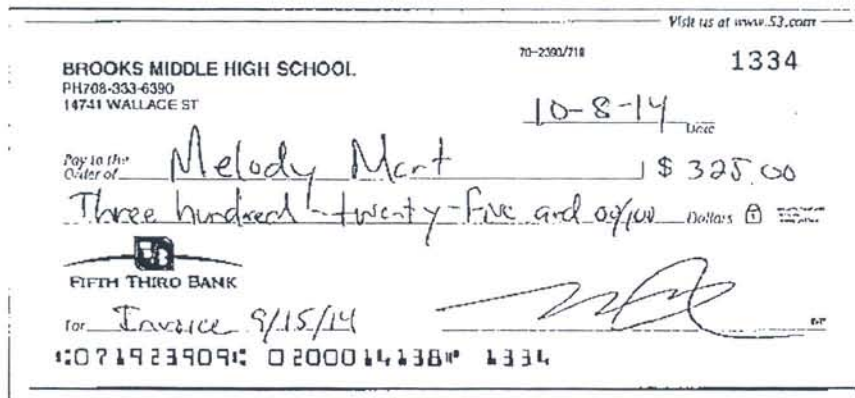 Visit us at www.53.com
70-2390/719
1334
BROOKS MIDDLE HIGH SCHOOL
PH708-333-6390
14741 WALLACE ST
10-8-14
Date
Pay to the
Order of Melody Mart $ 325.00
Three hundred - twenty-five and 00/100 Dollars
FIFTH THIRD BANK
for Invoice 9/15/14
⑆071923909⑆ 0200014138⑈ 1334